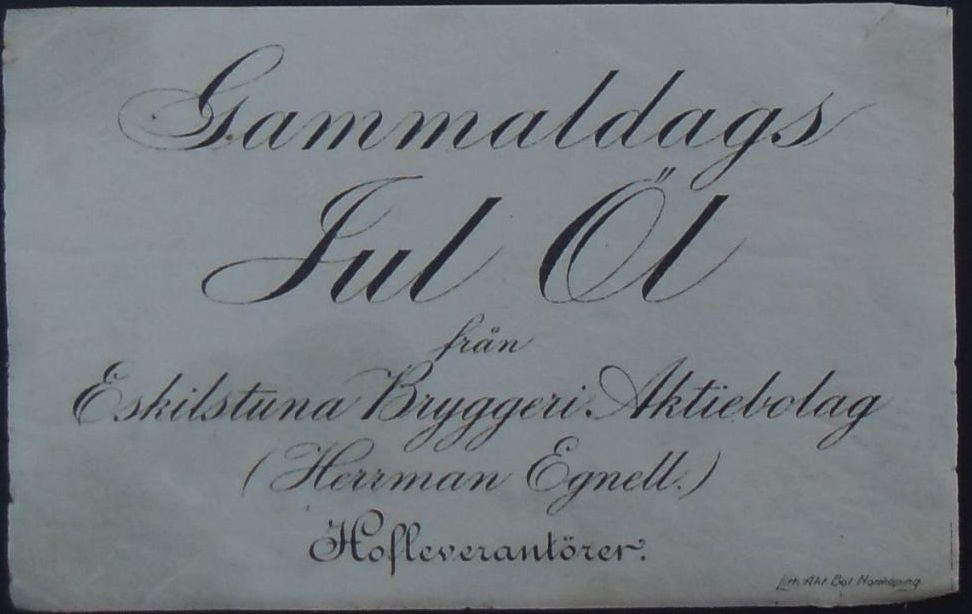 Gammaldags
Jul Öl
från
Eskilstuna Bryggeri Aktiebolag
(Herrman Egnell.)
Hofleverantörer.
Lith. Akt. Bol. Norrköping